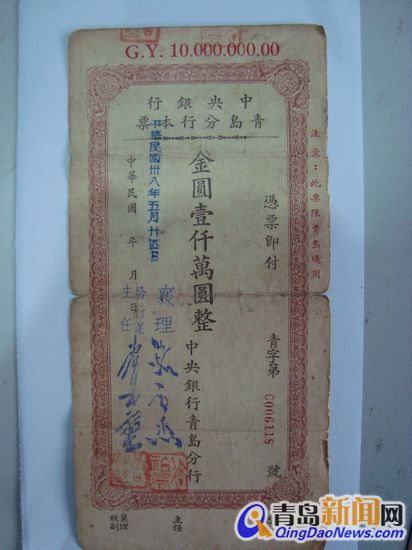 G.Y. 10.000.000.00
中央銀行
青島分行本票
注意：此票限青島通用
憑票即付
青字第 C006118 號
金圓壹仟萬圓整
中央銀行青島分行
中華民國卅八年五月廿四日
中華民國 年 月
襄理
發行課
主任
襄理
經副
主任
青岛新闻网
QingDaoNews.Com